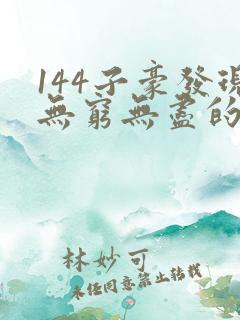 144子豪發現
無窮無盡的
林妙可
未經同意禁止轉載